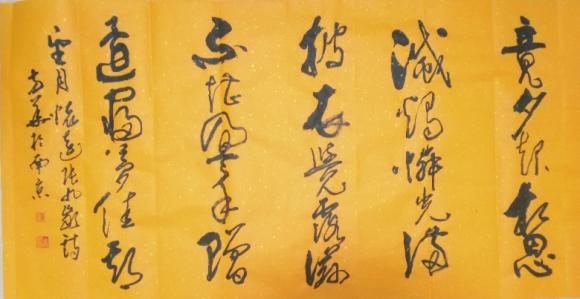 竟夕起相思
滅燭憐光滿
披衣覺露滋
不堪盈手贈
還寢夢佳期
望月懷遠張九齡詩
於南京